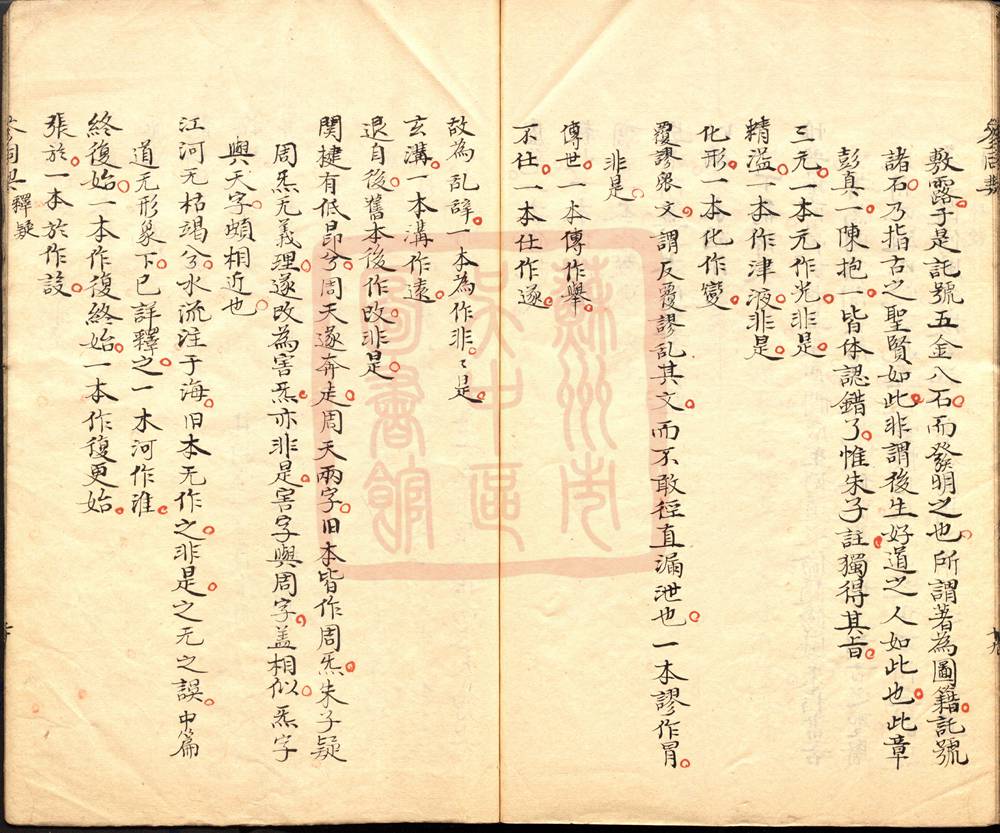 敷露于是託號五金八石而發明之也所謂著為圖籍託號
諸石乃指古之聖賢如此非謂後生好道之人如此也此章
彭真一陳抱一皆体認錯了惟朱子註獨得其旨
三元一本元作光非是
精溢一本作津液非是
化形一本化作變
覆謬眾文謂反覆謬乱其文而不敢徑直漏泄也一本謬作冐
非是
傳世一本傳作舉
不仕一本仕作遂
故為乱辞一本為作非〻是
玄溝一本溝作遠
退自後舊本後作改非是
関楗有低昂兮周天遂奔走周天兩字旧本皆作周炁朱子疑
周炁无義理遂改為害炁亦非是害字與周字盖相似炁字
與天字頗相近也
江河无枯竭兮水流注于海旧本无作之非是之无之誤中篇
道无形象下已詳釋之一木河作淮
終復始一本作復終始一本作復更始
張於一本於作設
參同契 釋疑
蘇州市
吴中區
圖書館